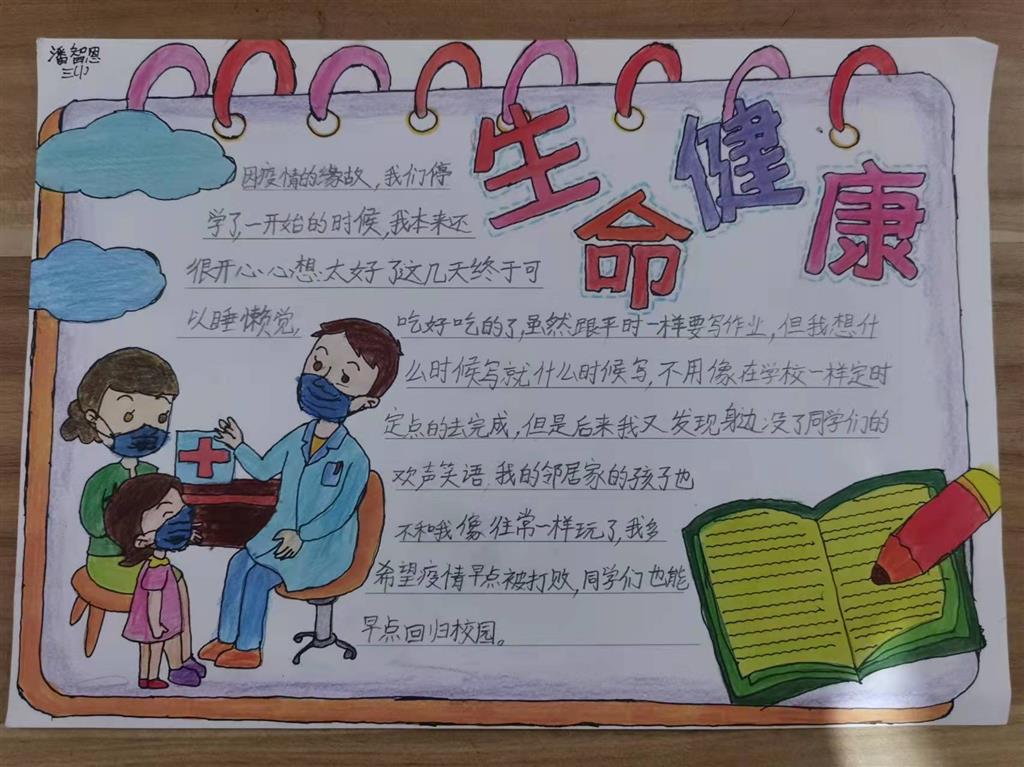 潘智恩
三(1)
生命健康
因疫情的缘故,我们停
学了,一开始的时候,我本来还
很开心,心想:太好了这几天终于可
以睡懒觉,
吃好吃的了,虽然跟平时一样要写作业,但我想什
么时候写就什么时候写,不用像在学校一样定时
定点的去完成,但是后来我又发现身边没了同学们的
欢声笑语,我的邻居家的孩子也
不和我像往常一样玩了,我多
希望疫情早点被打败,同学们也能
早点回归校园。